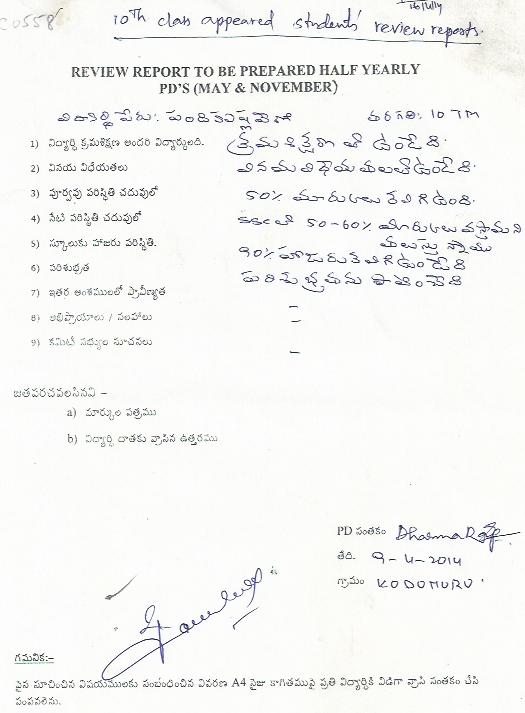 C0558
10TH class appeared students' review reports.
REVIEW REPORT TO BE PREPARED HALF YEARLY
PD'S (MAY & NOVEMBER)
తరగతి: 10 TH
1) విద్యార్థి క్రమశిక్షణ అందరి విద్యార్థులది. క్రమశిక్షణ తో ఉండేది.
2) వినయ విధేయతలు వినయ విధేయతలతో ఉండేది.
3) పూర్వపు పరిస్థితి చదువులో 50% మార్కులు కలిగి ఉంది.
4) నేటి పరిస్థితి చదువులో SSC లో 50-60% మార్కులు వస్తాయని
5) స్కూలుకు హాజరు పరిస్థితి. 90% హాజరు కలిగి ఉండేది
6) పరిశుభ్రత పరిశుభ్రతను పాటించేది
7) ఇతర అంశములలో ప్రావీణ్యత –
8) అభిప్రాయాలు / సలహాలు –
9) కమిటీ సభ్యుల సూచనలు –
జతపరచవలసినవి –
a) మార్కుల పత్రము
b) విద్యార్థి దాతకు వ్రాసిన ఉత్తరము
PD సంతకం
తేది. 9-4-2014
గ్రామం KODOMURU
గమనిక:–
పైన సూచించిన విషయములకు సంబంధించిన వివరణ A4 సైజు కాగితముపై ప్రతి విద్యార్థికి విడిగా వ్రాసి సంతకం చేసి
పంపవలెను.